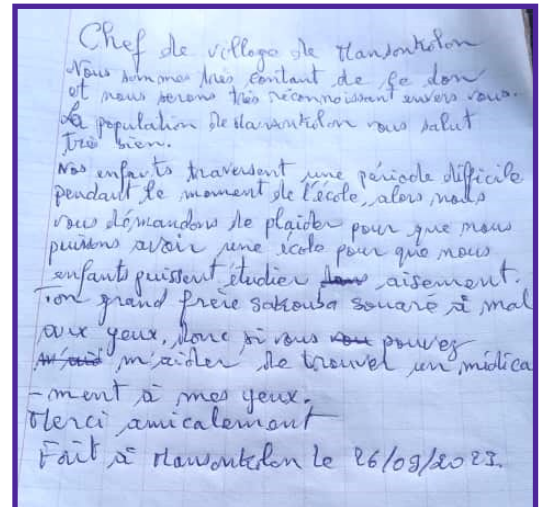 Chef de village de Mansonkolon
Nous sommes très contant de ce don
et nous serons très réconnoissant envers vous.
La population de Mansonkolon vous salut
très bien.
Nos enfants traversent une période difficile
pendant le moment de l'école, alors nous
vous démandons de plaider pour que nous
puissons avoir une école pour que nous
enfants puissent étudier aisement.
Ton grand frère Sakouba Souaré à mal
aux yeux, donc si vous pouvez
m'aider de trouvel un médica
-ment à mes yeux.
Merci amicalement
Fait à Mansonkolon le 26/09/2023.